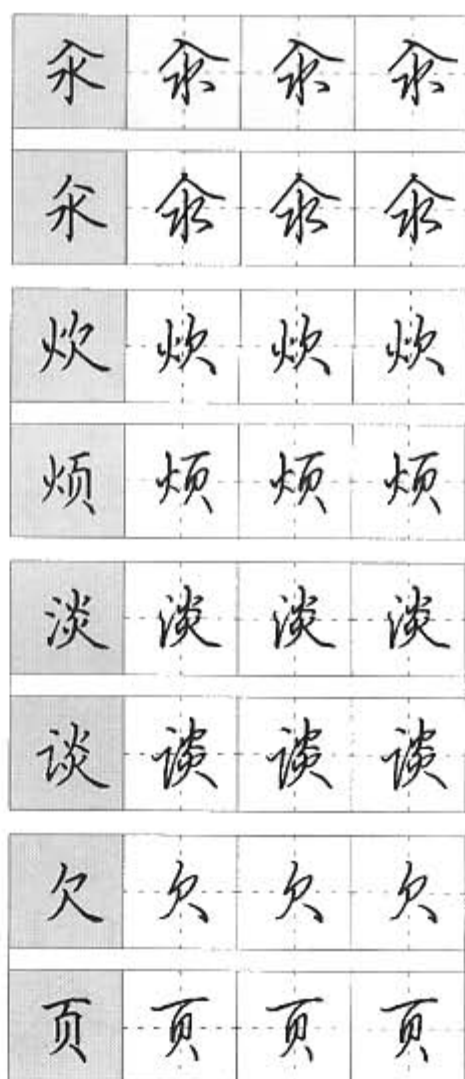 汆 汆 汆 汆
氽 氽 氽 氽
炊 炊 炊 炊
烦 烦 烦 烦
淡 淡 淡 淡
谈 谈 谈 谈
欠 欠 欠 欠
页 页 页 页